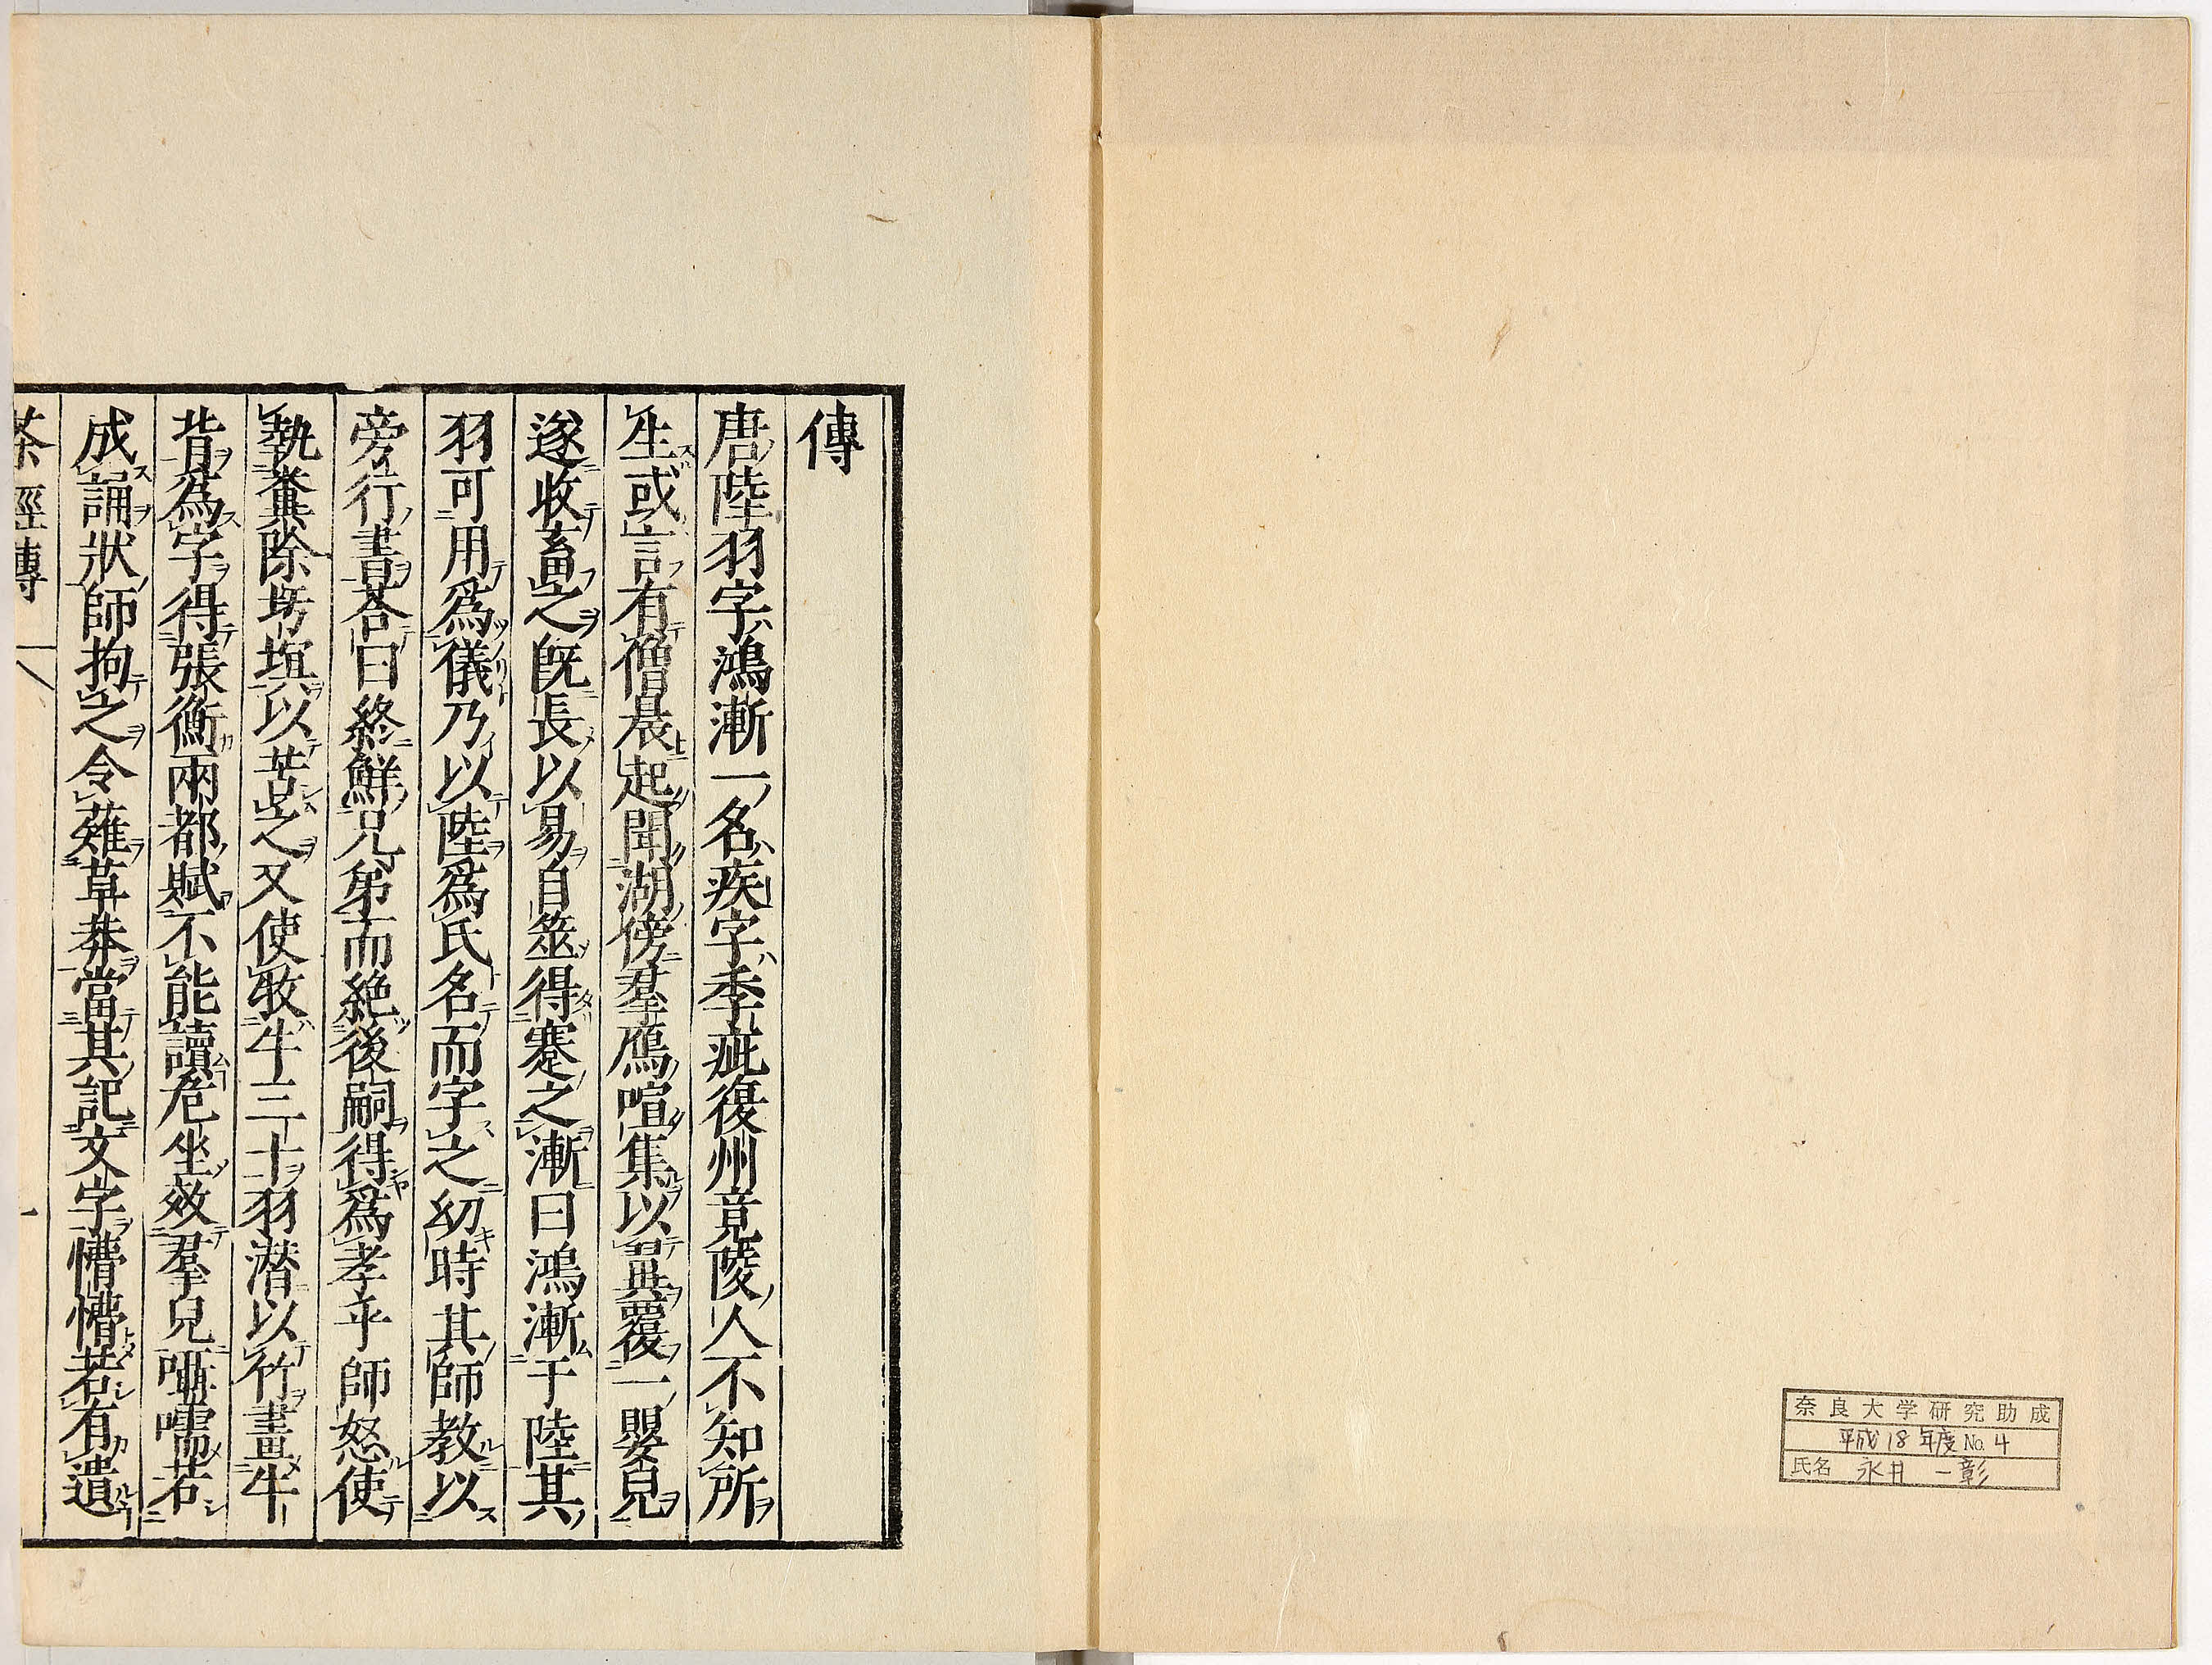 奈良大学研究助成
平成18年度No.4
氏名 永井一彰
傳
唐陸羽字鴻漸一名疾字季疵復州竟陵人不知所
生或言有僧晨起聞湖傍羣鴈喧集以翼覆一嬰兒
遂收畜之既長以易自筮得蹇之漸曰鴻漸于陸其
羽可用爲儀乃以陸爲氏名而字之幼時其師教以
旁行書荅曰終鮮兄弟而絶後嗣得爲孝乎師怒使
執糞除圬塓以苦之又使牧牛三十羽潜以竹畫牛
背爲字得張衡兩都賦不能讀危坐效羣兒囁嚅若
成誦狀師拘之令薙草莽當其記文字懵懵若有遺
茶經傳
一